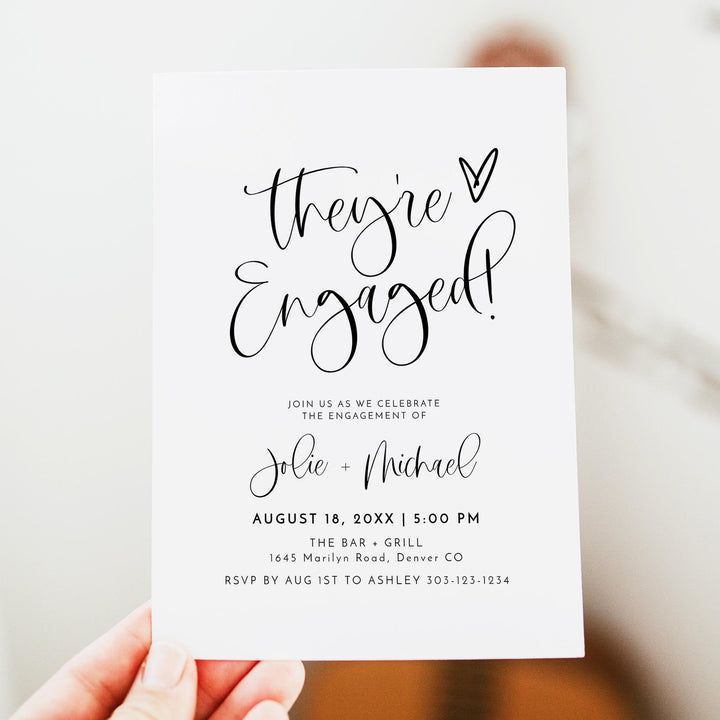 they're
Engaged!
JOIN US AS WE CELEBRATE
THE ENGAGEMENT OF
Jolie + Michael
AUGUST 18, 20XX | 5:00 PM
THE BAR + GRILL
1645 Marilyn Road, Denver CO
RSVP BY AUG 1ST TO ASHLEY 303-123-1234